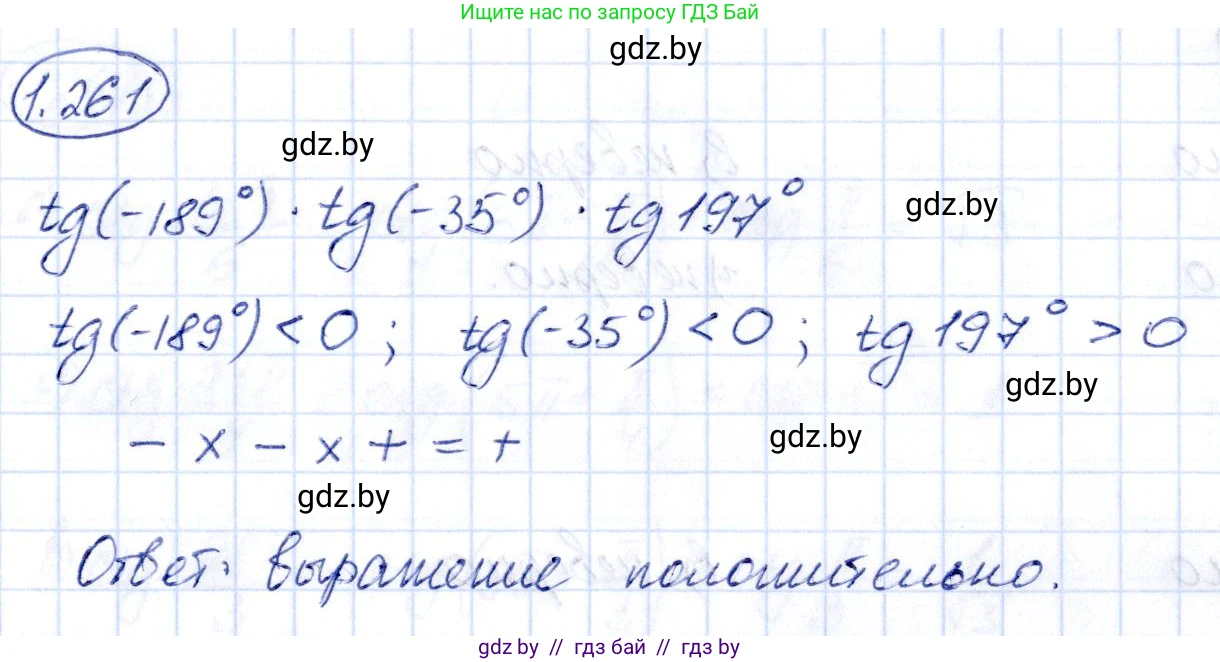 Ищите нас по запросу ГДЗ Бай
gdz.by
1.261
gdz.by
tg(-189°) · tg(-35°) · tg 197°
gdz.by
tg(-189°) < 0 ; tg(-35°) < 0 ; tg 197° > 0
gdz.by
- x - x + = +
gdz.by
gdz.by
Ответ: выражение положительно.
gdz.by // гдз бай // гдз by